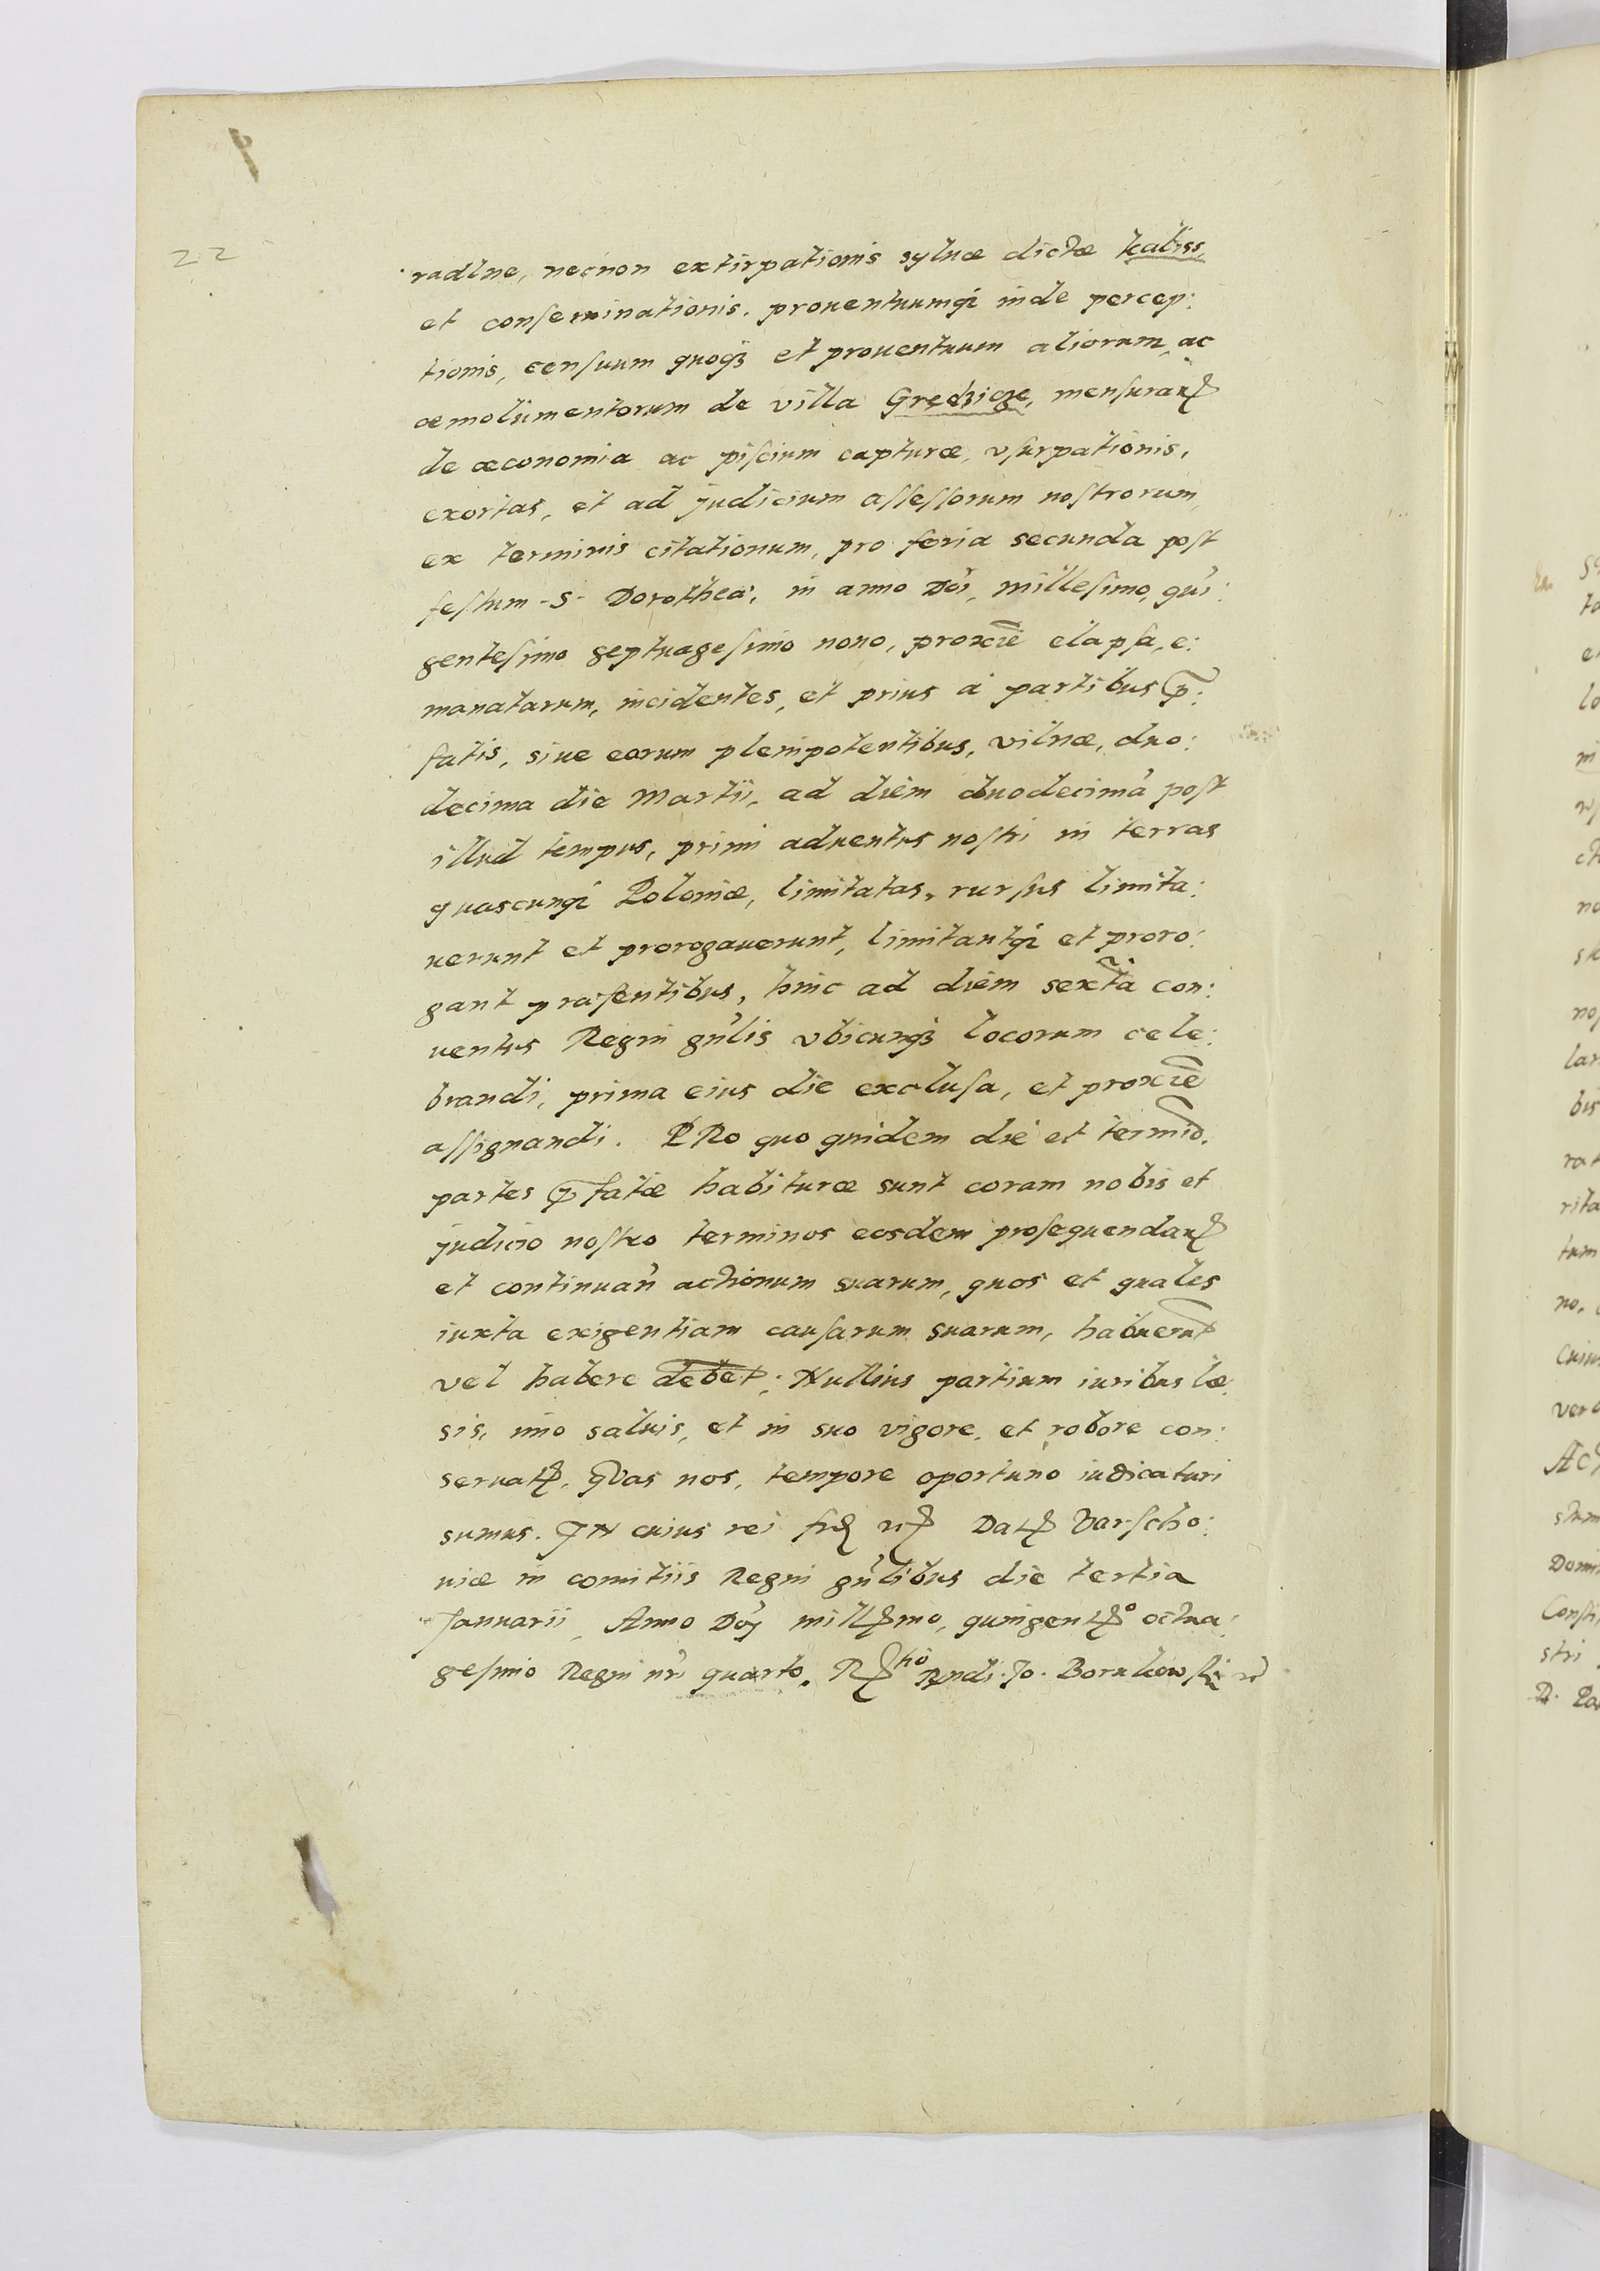 22
radlne, necnon extirpationis syluæ dictæ kaliss,
et conseminationis, prouentuumq; inde percep:
tionis, censuum quoq; et prouentuum aliorum, ac
æmolumentorum de villa Grędzicze, mensurar
de œconomia ac piscium capturæ, vsurpationis,
exortas, et ad judicium assessorum nostrorum,
ex terminis citationum, pro feria secunda post
festum S. Dorotheæ, in anno Dōi, millesimo, qui:
gentesimo septuagesimo nono, proxīe elapsa, e:
manatarum, incidentes, et prius a partibus p̄:
fatis, siue eorum plenipotentibus, vilnæ, duo:
decima die Martii, ad diem duodecimā post
illud tempus, primi aduentus nostri in terras
quascunq; Poloniæ, limitatas, rursus limita:
uerunt et prorogauerunt, limitantq; et proro:
gant præsentibus, hinc ad diem sextā con:
uentus Regni gn̄lis vbicunq; locorum cele:
brandi, prima eius die exclusa, et proxīe
assignandi. PRo quo quidem die et termīo,
partes p̄fatæ habituræ sunt coram nobis et
judicio nostro terminos eosdem prosequendar
et continuan̄ actionum suarum, quos et quales
iuxta exigentiam causarum suarum, habuerūt
vel habere debēt; Nullius partium iuribus læ
sis, imo saluis, et in suo vigore, et robore con:
seruat, quas nos, tempore oportuno iudicaturi
sumus. IN cuius rei Dat Varscho:
uiæ in comitiis Regni gn̄libus die tertia
Januarii, Anno Dōj mill̄mo, quingent̄o octua:
gesimo Regni nr̄i quarto. Rndi. Jo. Borukowski